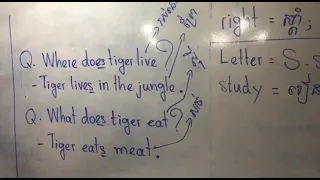 Q. Where does tiger live?
- Tiger lives in the jungle.
Q. What does tiger eat?
- Tiger eats meat.
right = ស្តាំ ;
Letter = S.
study = រៀន